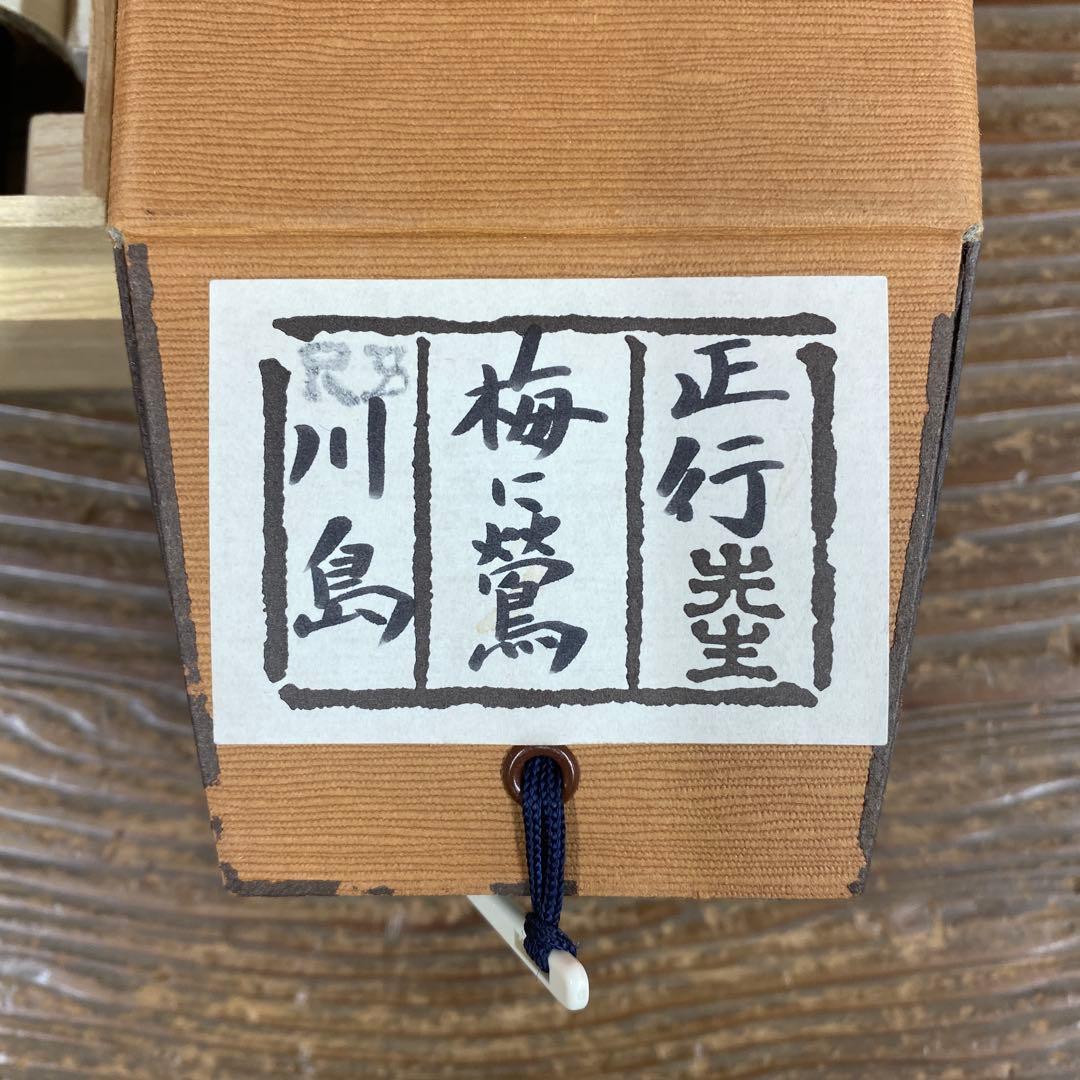 正行先生
梅に鶯
川島